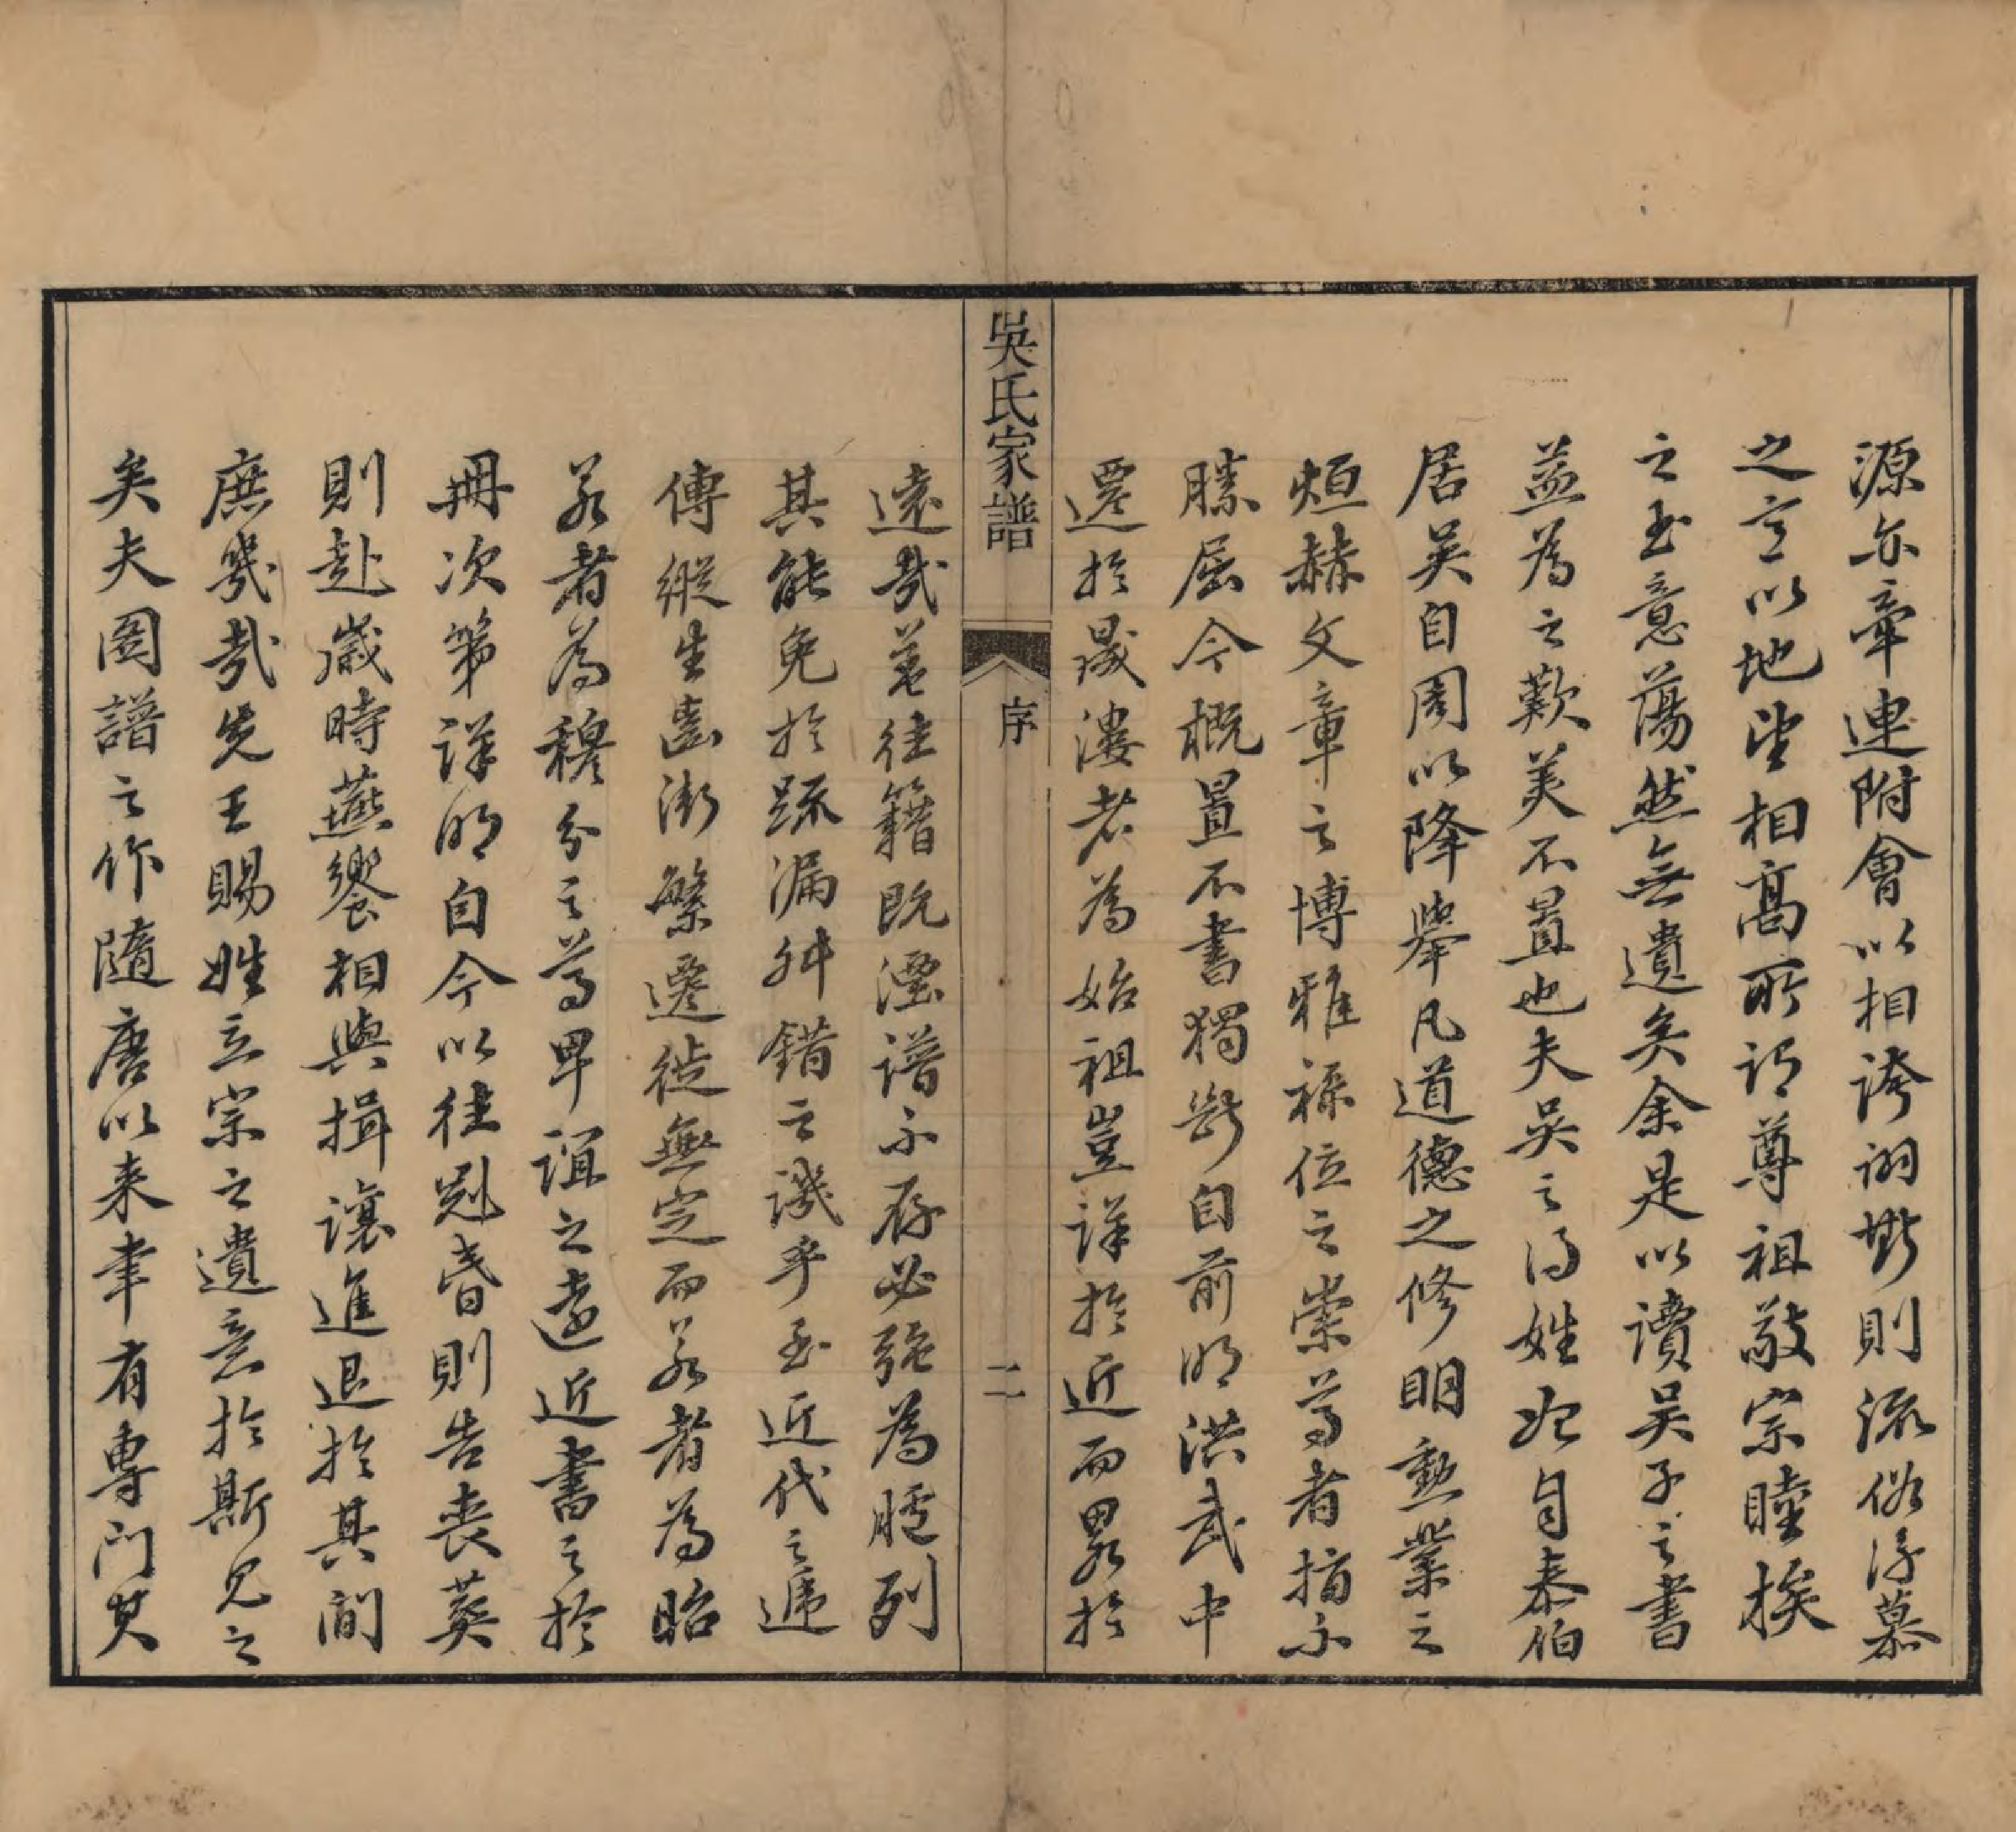 源亦牽連附會以相誇詡斯則流俗浮慕
之言以地望相高所謂尊祖敬宗睦族
之至意蕩然無遺矣余是以讀吴子之書
益為之歎美不置也夫吴之得姓始自泰伯
居吴自周以降舉凡道德之修明勲業之
烜赫文章之博雅祿位之崇尊者指不
勝屈今概置不書獨斷自前明洪武中
遷於晟漊者為始祖豈詳於近而畧於
吳氏家譜
序
二
遠哉蓋往籍既湮譜不存必強為臚列
其能免於踈漏舛錯之譏乎至近代之遞
傳縱生齒漸繁遷徙無定而某者為昭
某者為穆分之尊卑誼之遠近書之於
冊次第詳明自今以往冠昏則告喪葬
則赴歲時燕饗相與揖讓進退於其間
庶幾哉先王賜姓立宗之遺意於斯見之
矣夫圖譜之作隨唐以来聿有專門其